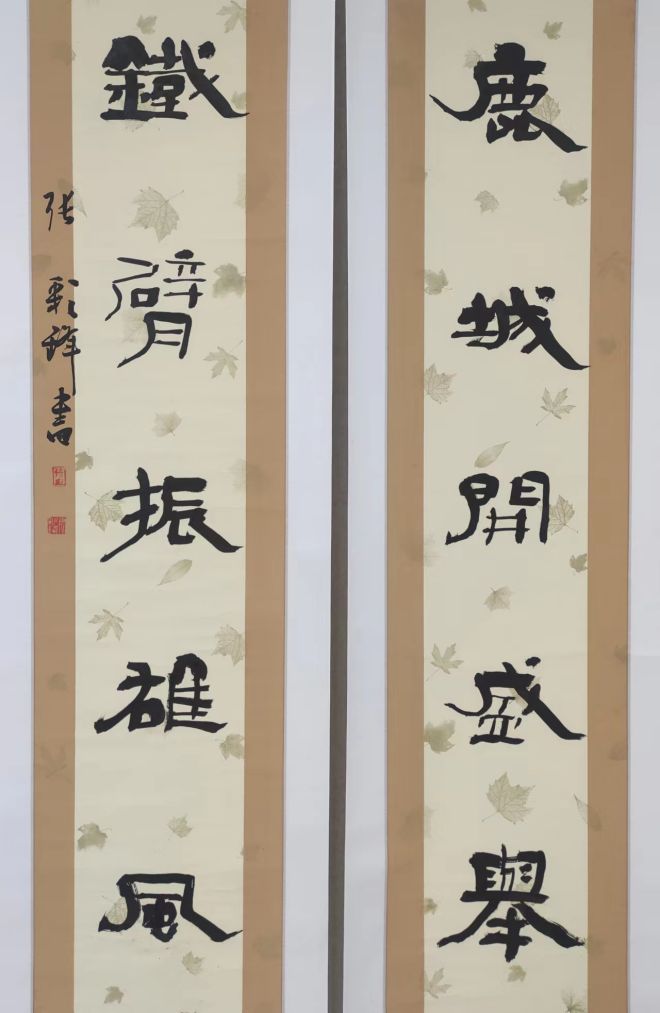 鹿城開盛舉
鐵臂振雄風
张彩鋒書